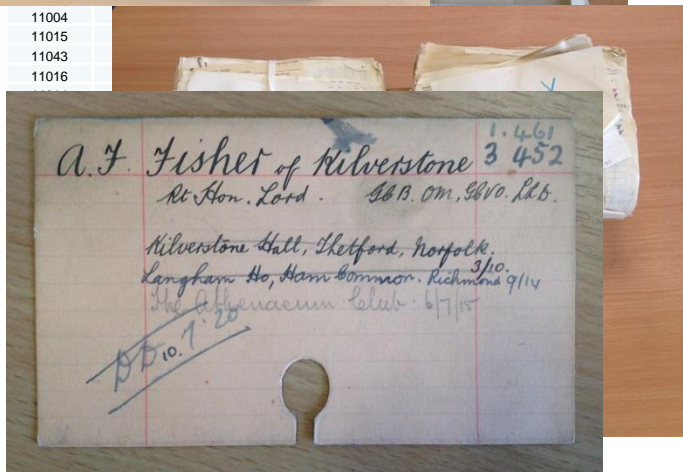 11004
11015
11043
11016
1. 461
A.F. Fisher of Kilverstone 3 452
Rt Hon. Lord. GCB. OM, GCVO. LLD.
Kilverstone Hall, Thetford, Norfolk.
3/10.
Langham Ho, Ham Common. Richmond 9/14
The Athenaeum Club. 6/7/15
DD 10.7.20